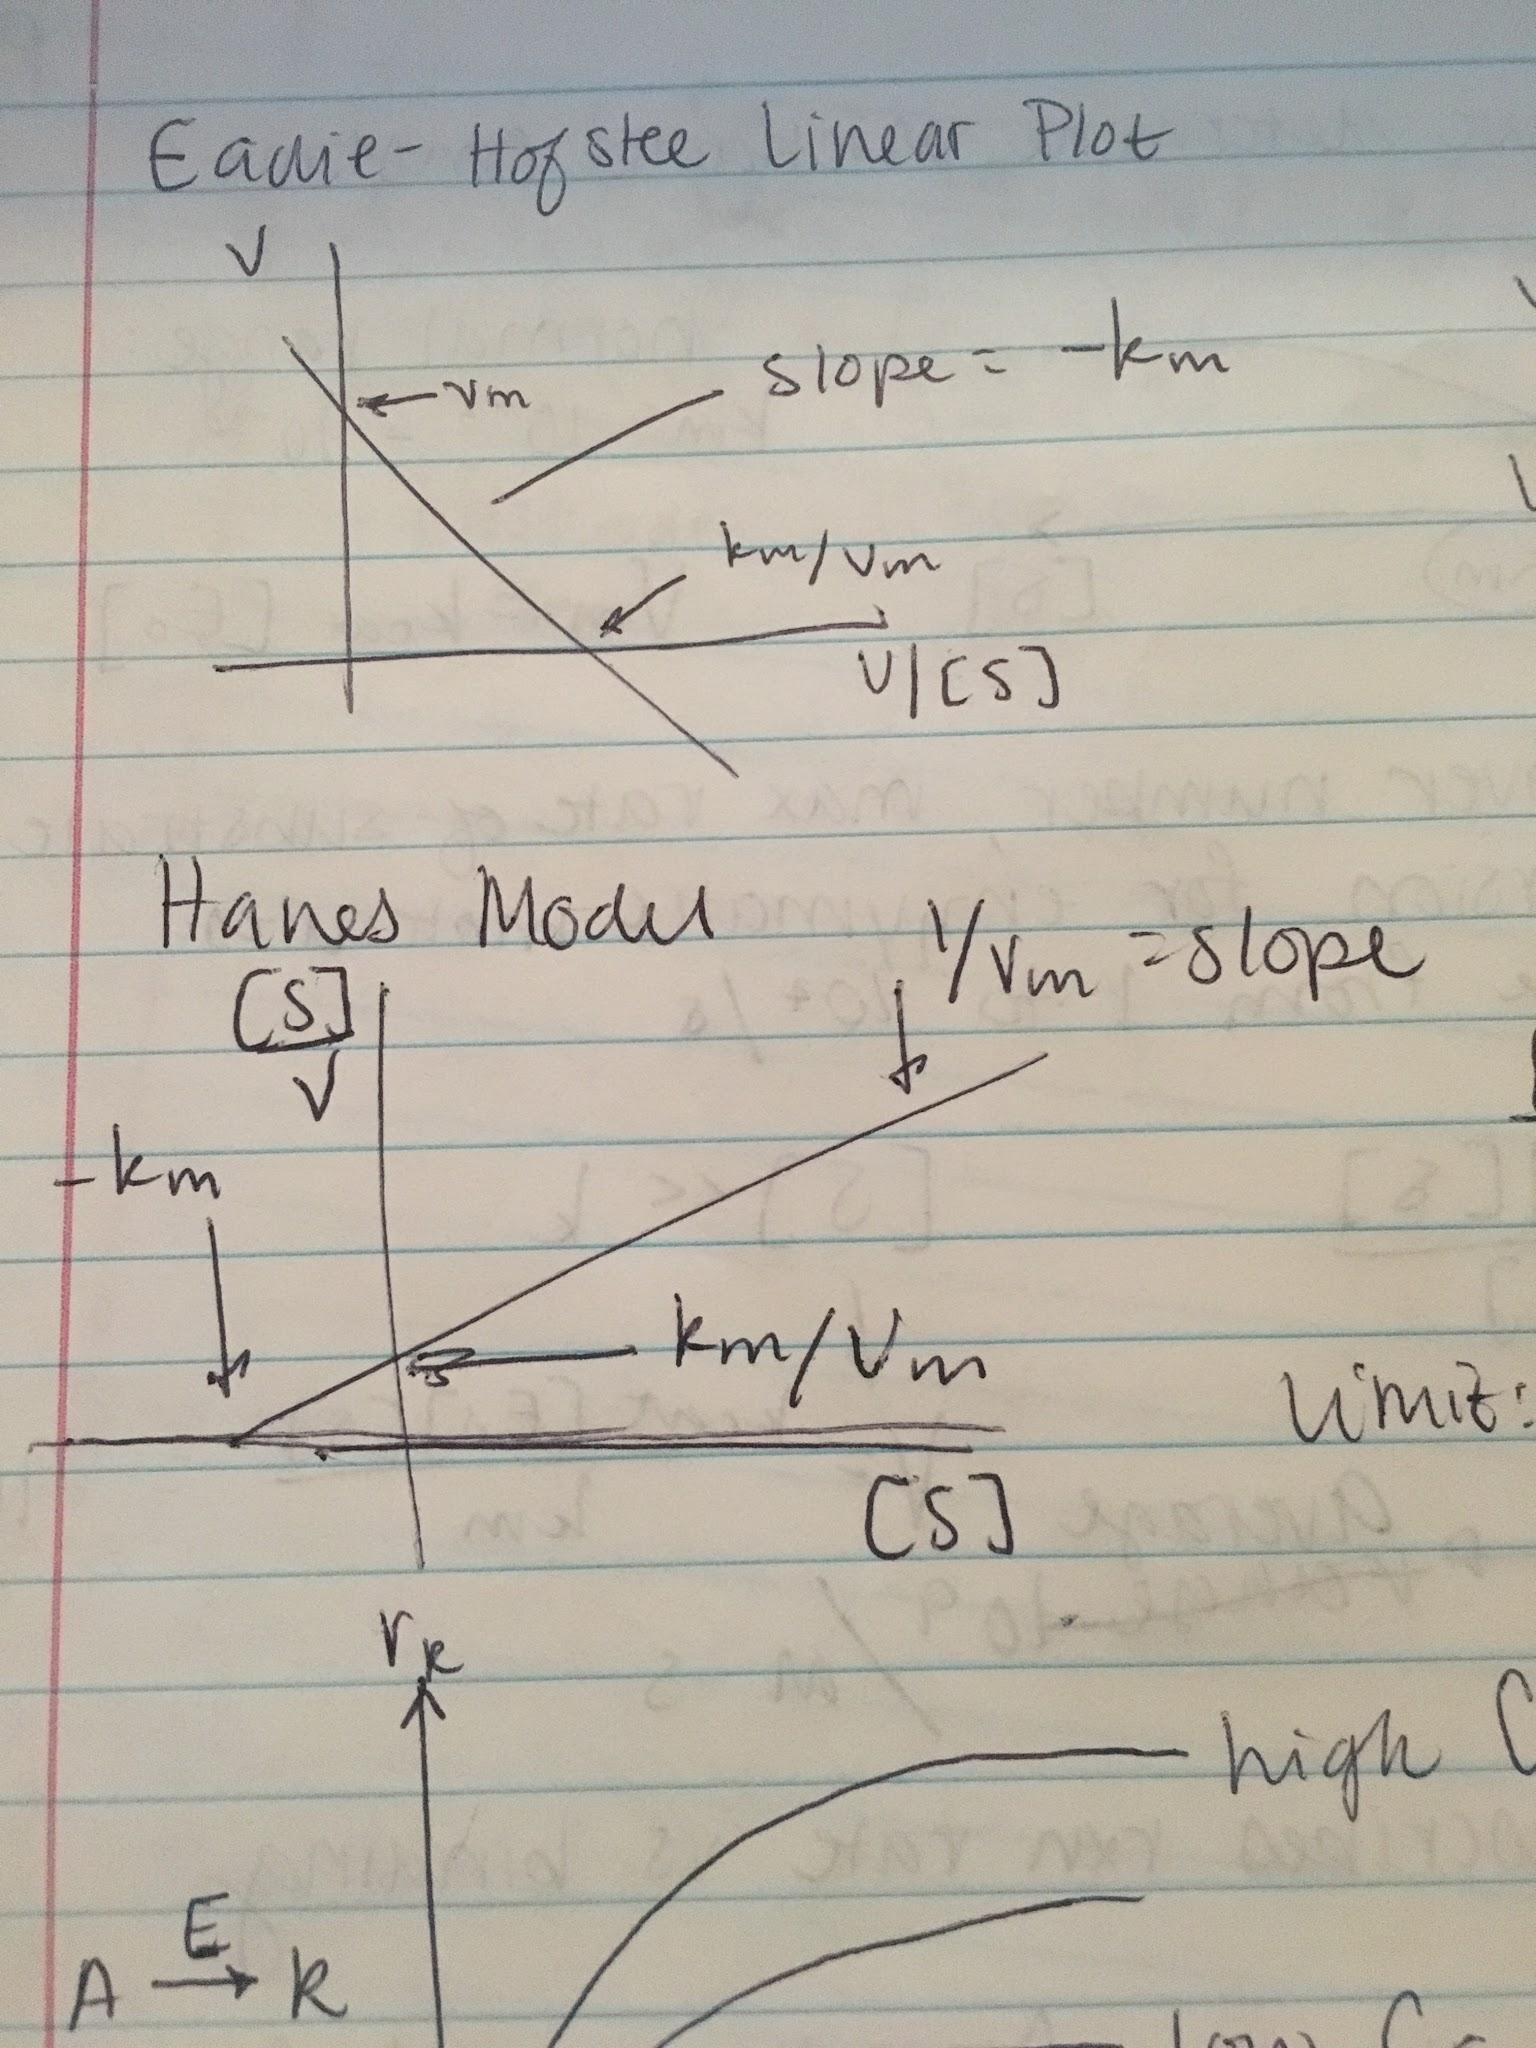 Eadie-Hofstee Linear Plot
V
Vm
slope = -km
km/Vm
V/[S]
Hanes Model
[S]
V
1/Vm = slope
-km
km/Vm
[S]
limit:
rR
high C
E
A → R
low